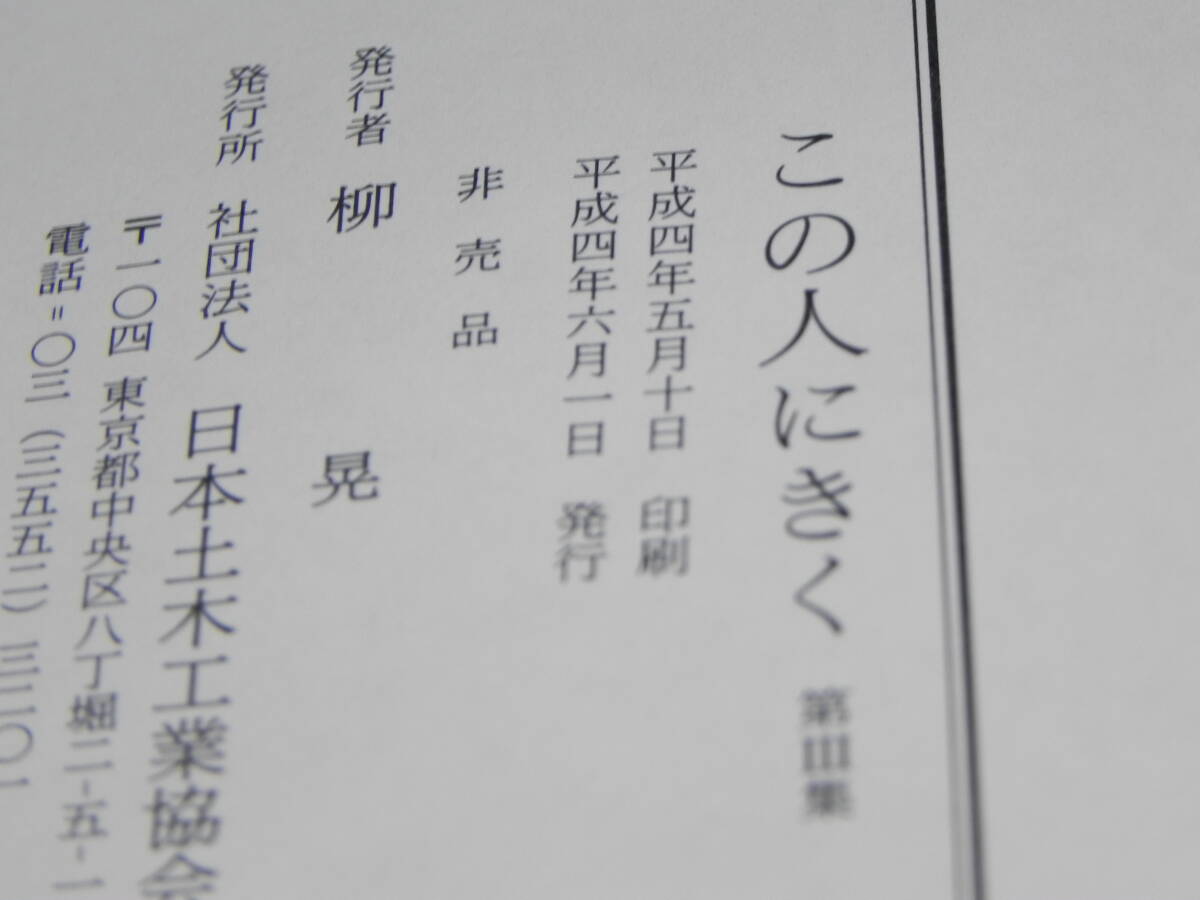 この人にきく 第Ⅲ集
平成四年五月十日 印刷
平成四年六月一日 発行
非売品
発行者 柳 晃
発行所 社団法人 日本土木工業協会
〒一〇四 東京都中央区八丁堀二-五-一
電話=〇三(三五五二)三二〇一